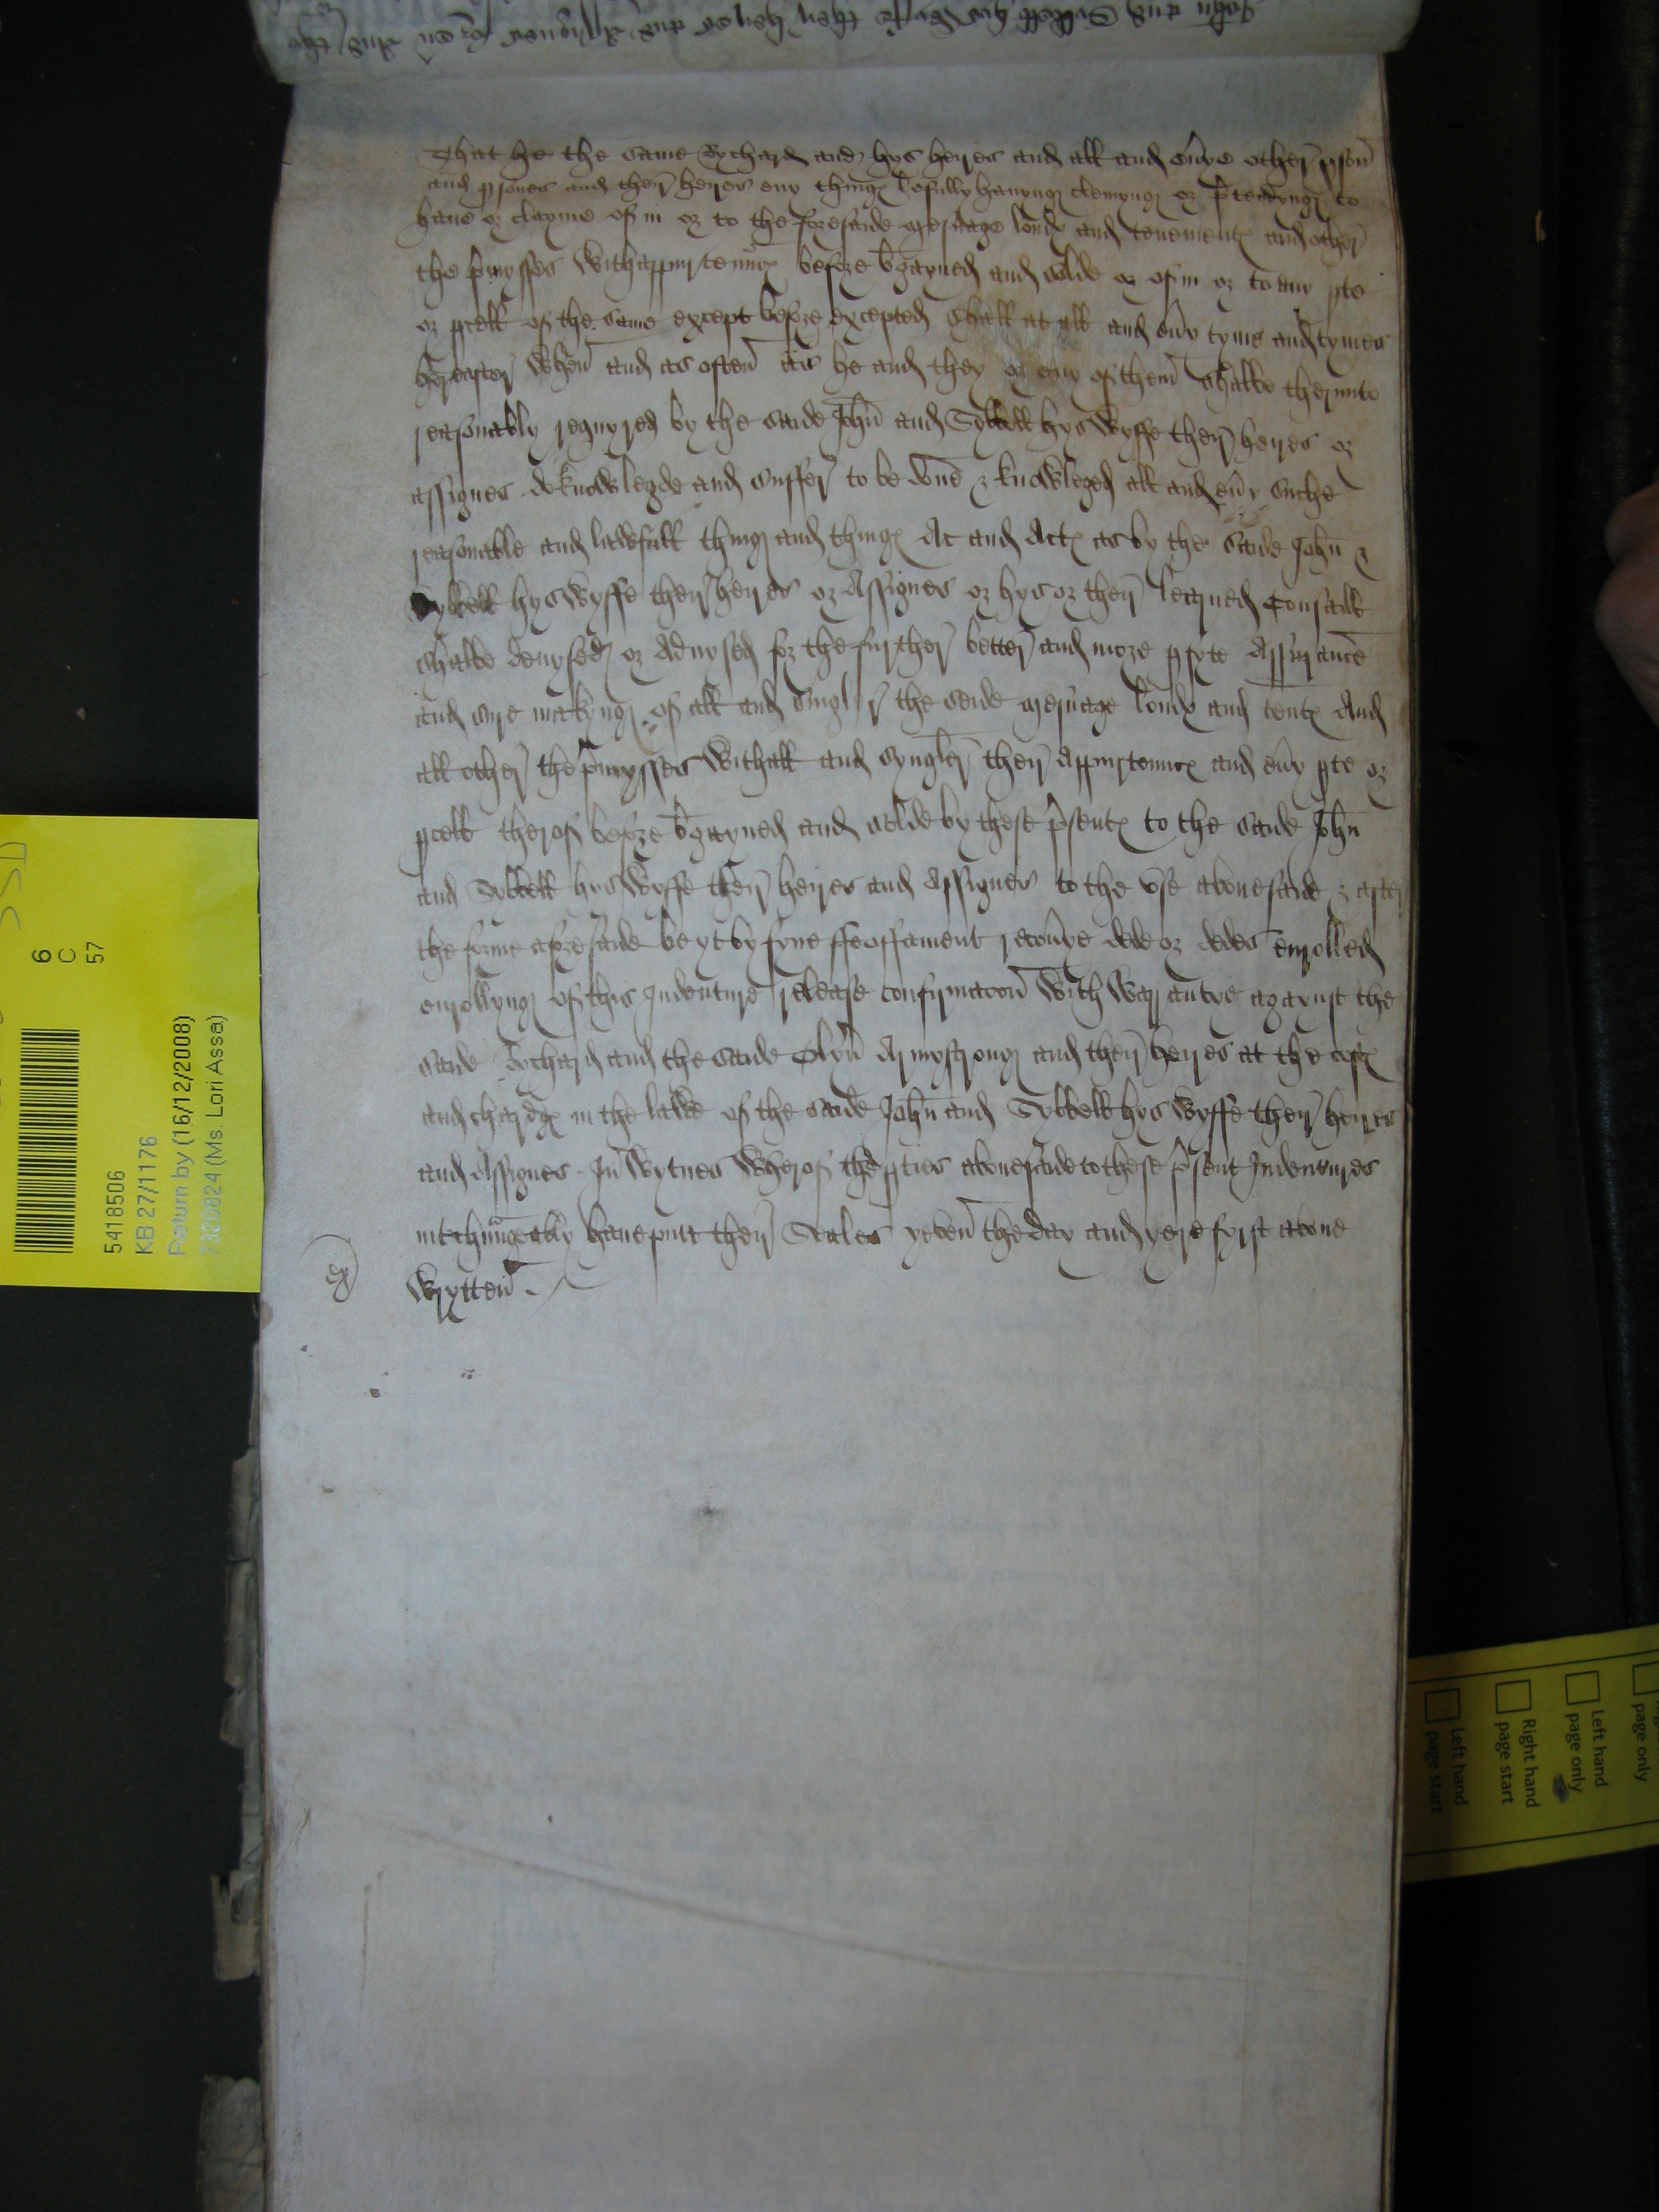 That he the same Rychard and hys heyres and all and eu'ye other p'son
and p'sones and their heyres eny thinge lefully hauyng clemyng or p'tendyng to
haue or clayme of in or to the foresaide mesuage londes and tenementes and other
the p'mysses with appurten'nces before b'gayned and solde or of in or to any p'te
or p'cell of the same except before excepted shall at all and eu'y tyme and tymes
hereafter when and as often as he and they or eny of them shalbe therunto
reasonably requyred by the saide John and Sybbell hys wyffe their heyres or
assignes do knowlegde and suffer to be done & knowleged all and eu'y suche
reasonable and lawfull thing and thinges Ac and Actes as by the saide John &
Sybbell hys wyffe their heyres or Assignes or hys or their lerned Counsall
shalbe deuysed or Aduysed for the further better and more p'fyte Assurance
and sure makyng of all and singler the saide mesuage londes and tentes And
all other the p'mysses with all and syngler their Appurten'nces and eu'y p'te or
p'cell therof before b'gayned and solde by these p'sentes to the saide John
and Sybbell hys wyffe their heyres and Assignes to the vse abouesaide & after
the forme aforesaide be yt by fyne ffeoffament recou'ye dede or dedes enrolled
enrollyng of this Indenture release confirmacon with warrantye agaynst the
saide Rychard and the saide Armystrong and their heyres at the costes
and chardges in the lawe of the saide John and Sybbell hys wyffe their heyres
and Assignes . In wytnes wherof the p'ties abouesaide to these p'sent Indentures
int'chungeably haue putt their Seales yeven the day and yere fyrst aboue
wrytten
6
C
57
5418506
KB 27/1176
Return by (16/12/2008)
(Ms. Lori Assa)
page only
Left hand
page only
Right hand
page start
Left hand
page start